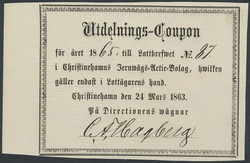 Utdelnings-Coupon
för året 1865 till Lottbrefwet № 87
i Christinehamns Jernwägs-Actie-Bolag, hwilken
gäller endast i Lottägarens hand.
Christinehamn den 24 Mars 1863.
På Directionens wägnar
C A Hagberg